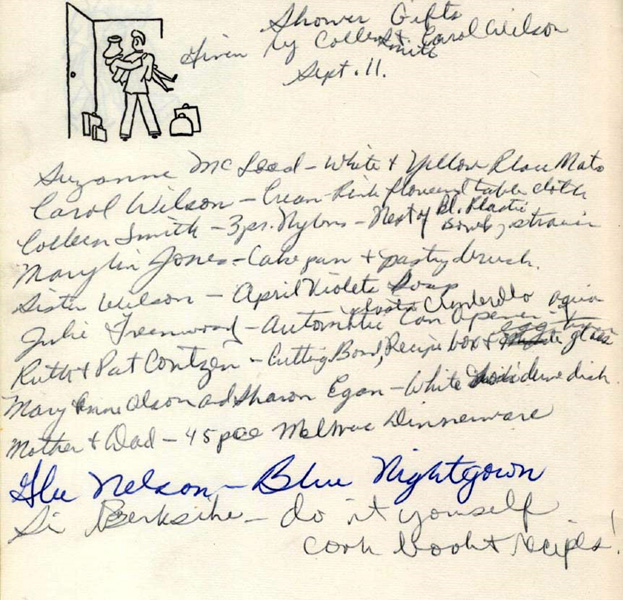 Shower Gifts
Given by Colleen Smith & Carol Wilson
Sept. 11.
Suzanne McLeod - White & Yellow Place Mats
Carol Wilson - Cream Pink flowered table cloth
Colleen Smith - 3 pr. Nylons - Nest of Pl. Plastic Bowls, strainer
Marylin Jones - Cake pan & pastry brush.
Sister Wilson - April Violets Soap
Julie Greenwood - Automatic Can Opener -
Ruth & Pat Contzen - Cutting Board, Recipe box &
Mary Anne Olson and Sharon Egan - White dish.
Mother & Dad - 45 pce Melmac Dinnerware
Nelson - Blue Nightgown
- do it yourself
cook book & recipes!